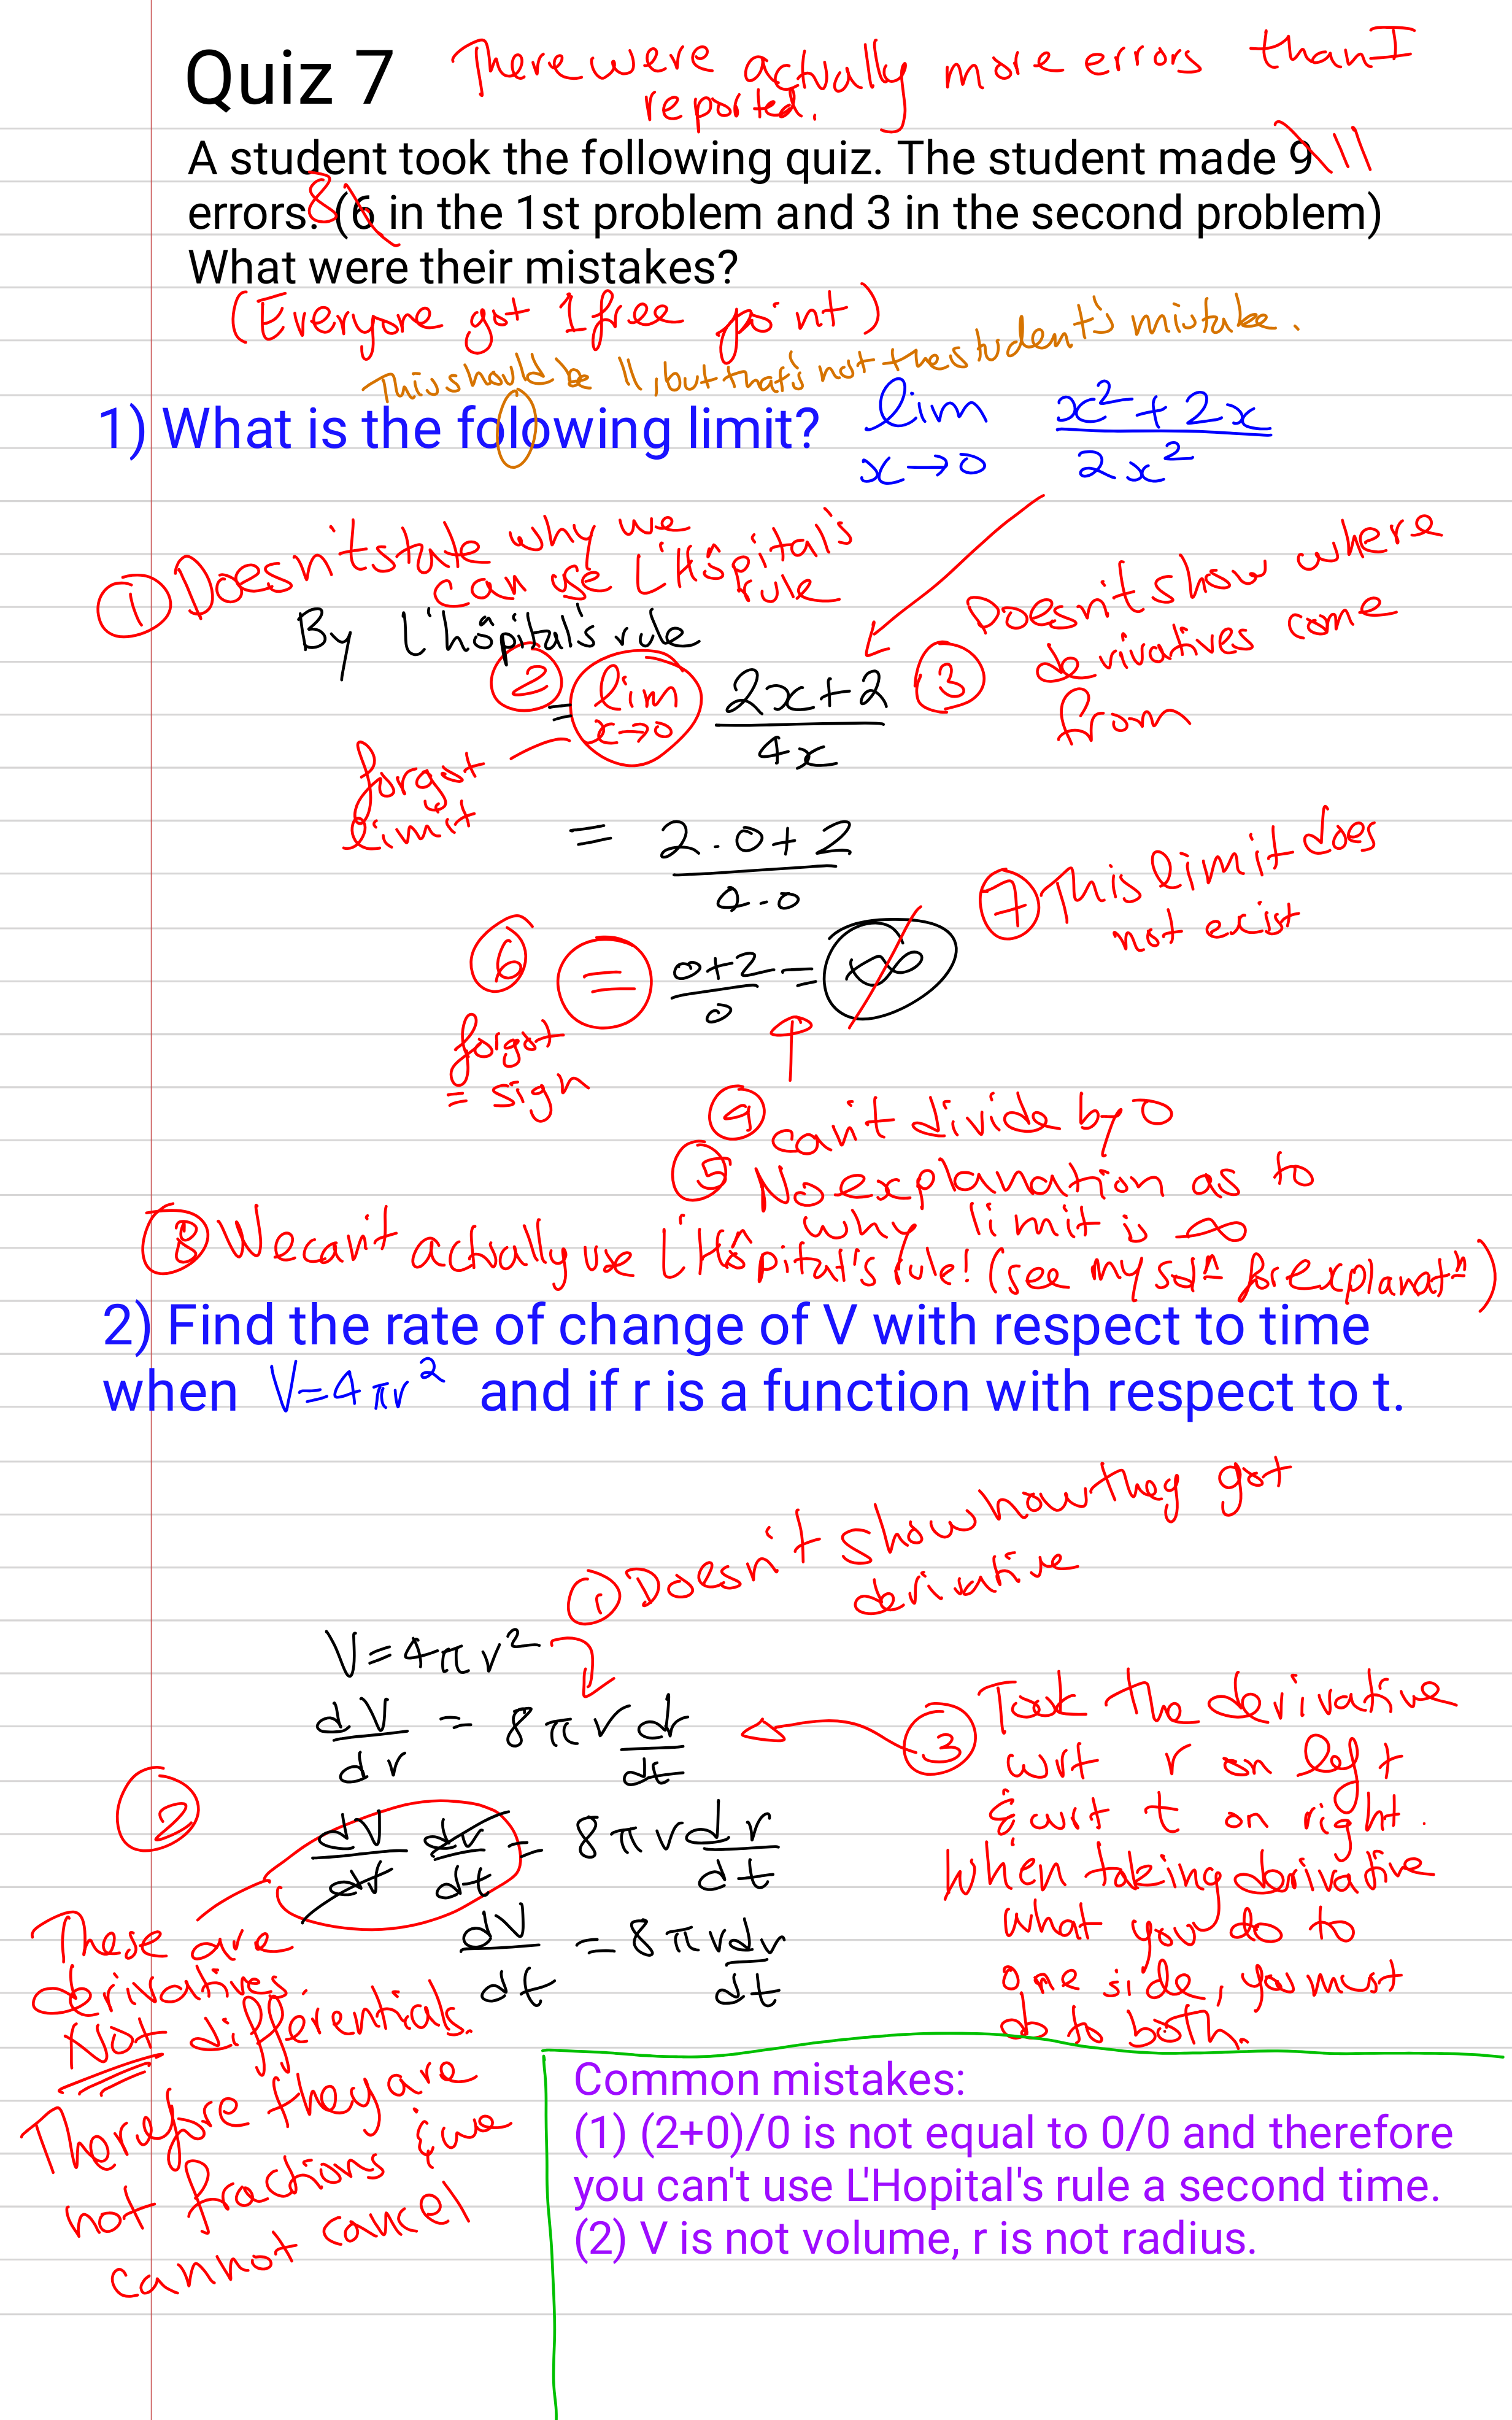 Quiz 7 There were actually more errors than I
reported.
A student took the following quiz. The student made 9 11
errors. 8 (6 in the 1st problem and 3 in the second problem)
What were their mistakes?
(Everyone got 1 free point)
This should be ll, but that's not the student's mistake.
1) What is the folowing limit? lim x→0 (x² + 2x)/(2x²)
① Doesn't state why we
can use L'Hôpital's
rule
By L'hôpital's rule
③ Doesn't show where
derivatives come
from
② = lim x→0 (2x+2)/(4x)
forgot
limit
= (2·0+2)/(4·0)
⑦ This limit does
not exist
⑥ = (0+2)/0 = ∞
forgot
= sign
④ can't divide by 0
⑤ No explanation as to
why limit is ∞
⑧ We can't actually use L'Hôpital's rule! (see my solⁿ for explanatⁿ)
2) Find the rate of change of V with respect to time
when V=4πr² and if r is a function with respect to t.
① Doesn't show how they got
derivative
V=4πr²
dV/dr = 8πr dr/dt
③ Took the derivative
wrt r on left
& wrt t on right.
When taking derivative
what you do to
one side, you must
do to both.
② dV/dr dr/dt = 8πr dr/dt
dV/dt = 8πr dr/dt
These are
derivatives.
NOT differentials.
Therefore they are
not fractions & we
cannot cancel
Common mistakes:
(1) (2+0)/0 is not equal to 0/0 and therefore
you can't use L'Hopital's rule a second time.
(2) V is not volume, r is not radius.